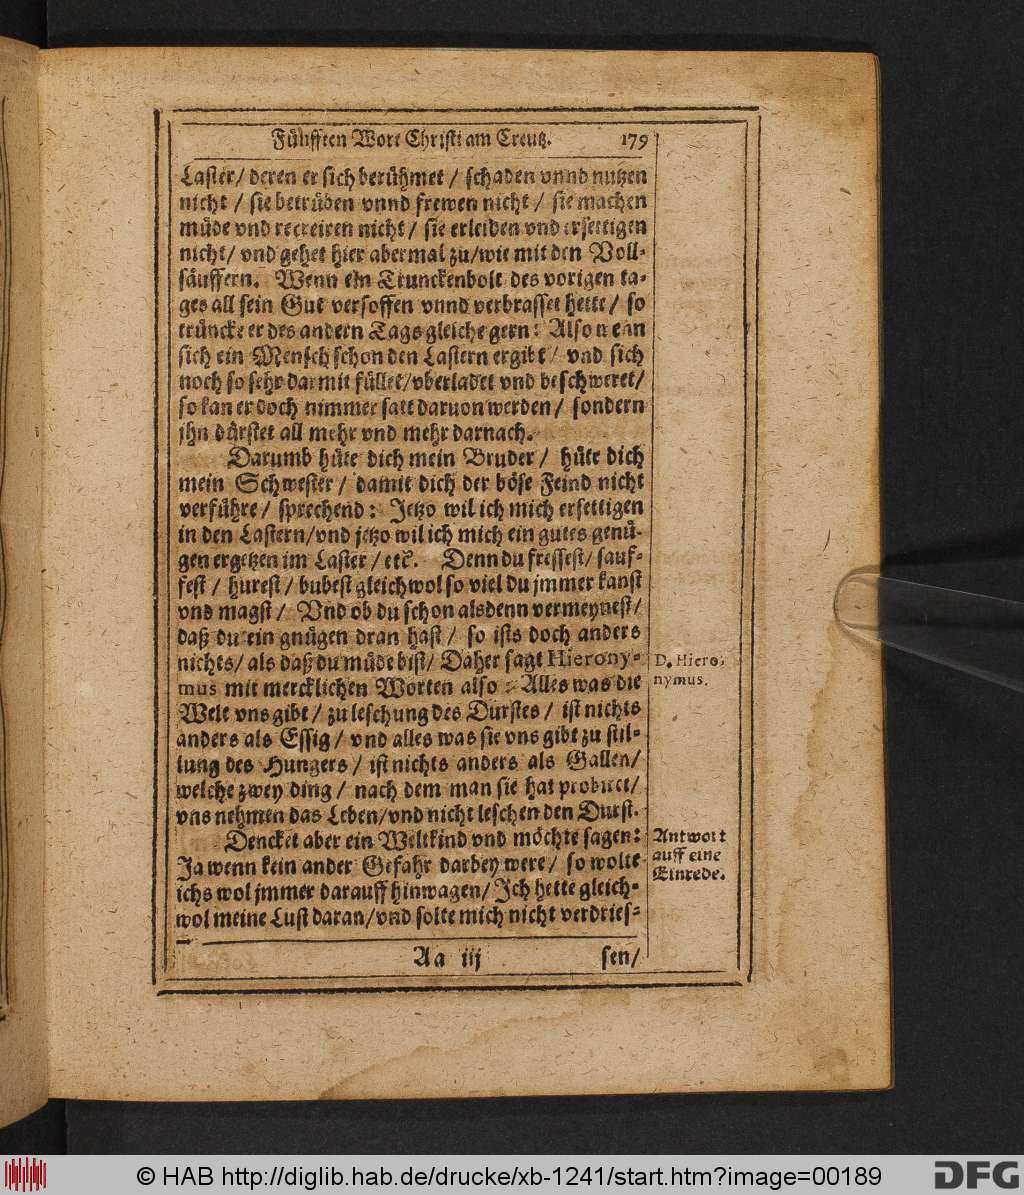 Fünfften Wort Christi am Creutz. 179
Laster/ deren er sich berühmet / schaden vnnd nutzen
nicht / sie betrüben vnnd frewen nicht / sie machen
müde vnd recreiren nicht / sie erleiden vnd ersettigen
nicht/ vnd gehet hier abermal zu/wie mit den Voll-
säuffern. Wenn ein Trunckenbolt des vorigen ta-
ges all sein Gut versoffen vnnd verbrasset hette/ so
trüncke er des andern Tags gleiche gern: Also wenn
sich ein Mensch schon den Lastern ergibt / vnd sich
noch so sehr darmit füllet/vberladet vnd beschweret/
so kan er doch nimmer satt daruon werden / sondern
jhn dürstet all mehr vnd mehr darnach.
Darumb hüte dich mein Bruder / hüte dich
mein Schwester / damit dich der böse Feind nicht
verführe / sprechend: Jetzo wil ich mich ersettigen
in den Lastern/vnd jetzo wil ich mich ein gutes genü-
gen ergetzen im Laster / etc. Denn du fressest/ sauf-
fest / hurest/ bubest gleichwol so viel du jmmer kanst
vnd magst / Vnd ob du schon alsdenn vermeynest/
daß du ein gnügen dran hast / so ists doch anders
nichts/ als daß du müde bist/ Daher sagt Hierony-
mus mit mercklichen Worten also : Alles was die
Welt vns gibt / zu leschung des Durstes / ist nichts
anders als Essig / vnd alles was sie vns gibt zu stil-
lung des Hungers / ist nichts anders als Gallen/
welche zwey ding / nach dem man sie hat probiret/
vns nehmen das Leben/vnd nicht leschen den Durst.
Dencket aber ein Weltkind vnd möchte sagen:
Ja wenn kein ander Gefahr darbey were / so wolte
ichs wol jmmer darauff hinwagen/ Jch hette gleich-
wol meine Lust daran/vnd solte mich nicht verdries-
Aa iij sen/
D. Hiero-
nymus.
Antwort
auff eine
Einrede.
© HAB http://diglib.hab.de/drucke/xb-1241/start.htm?image=00189
DFG